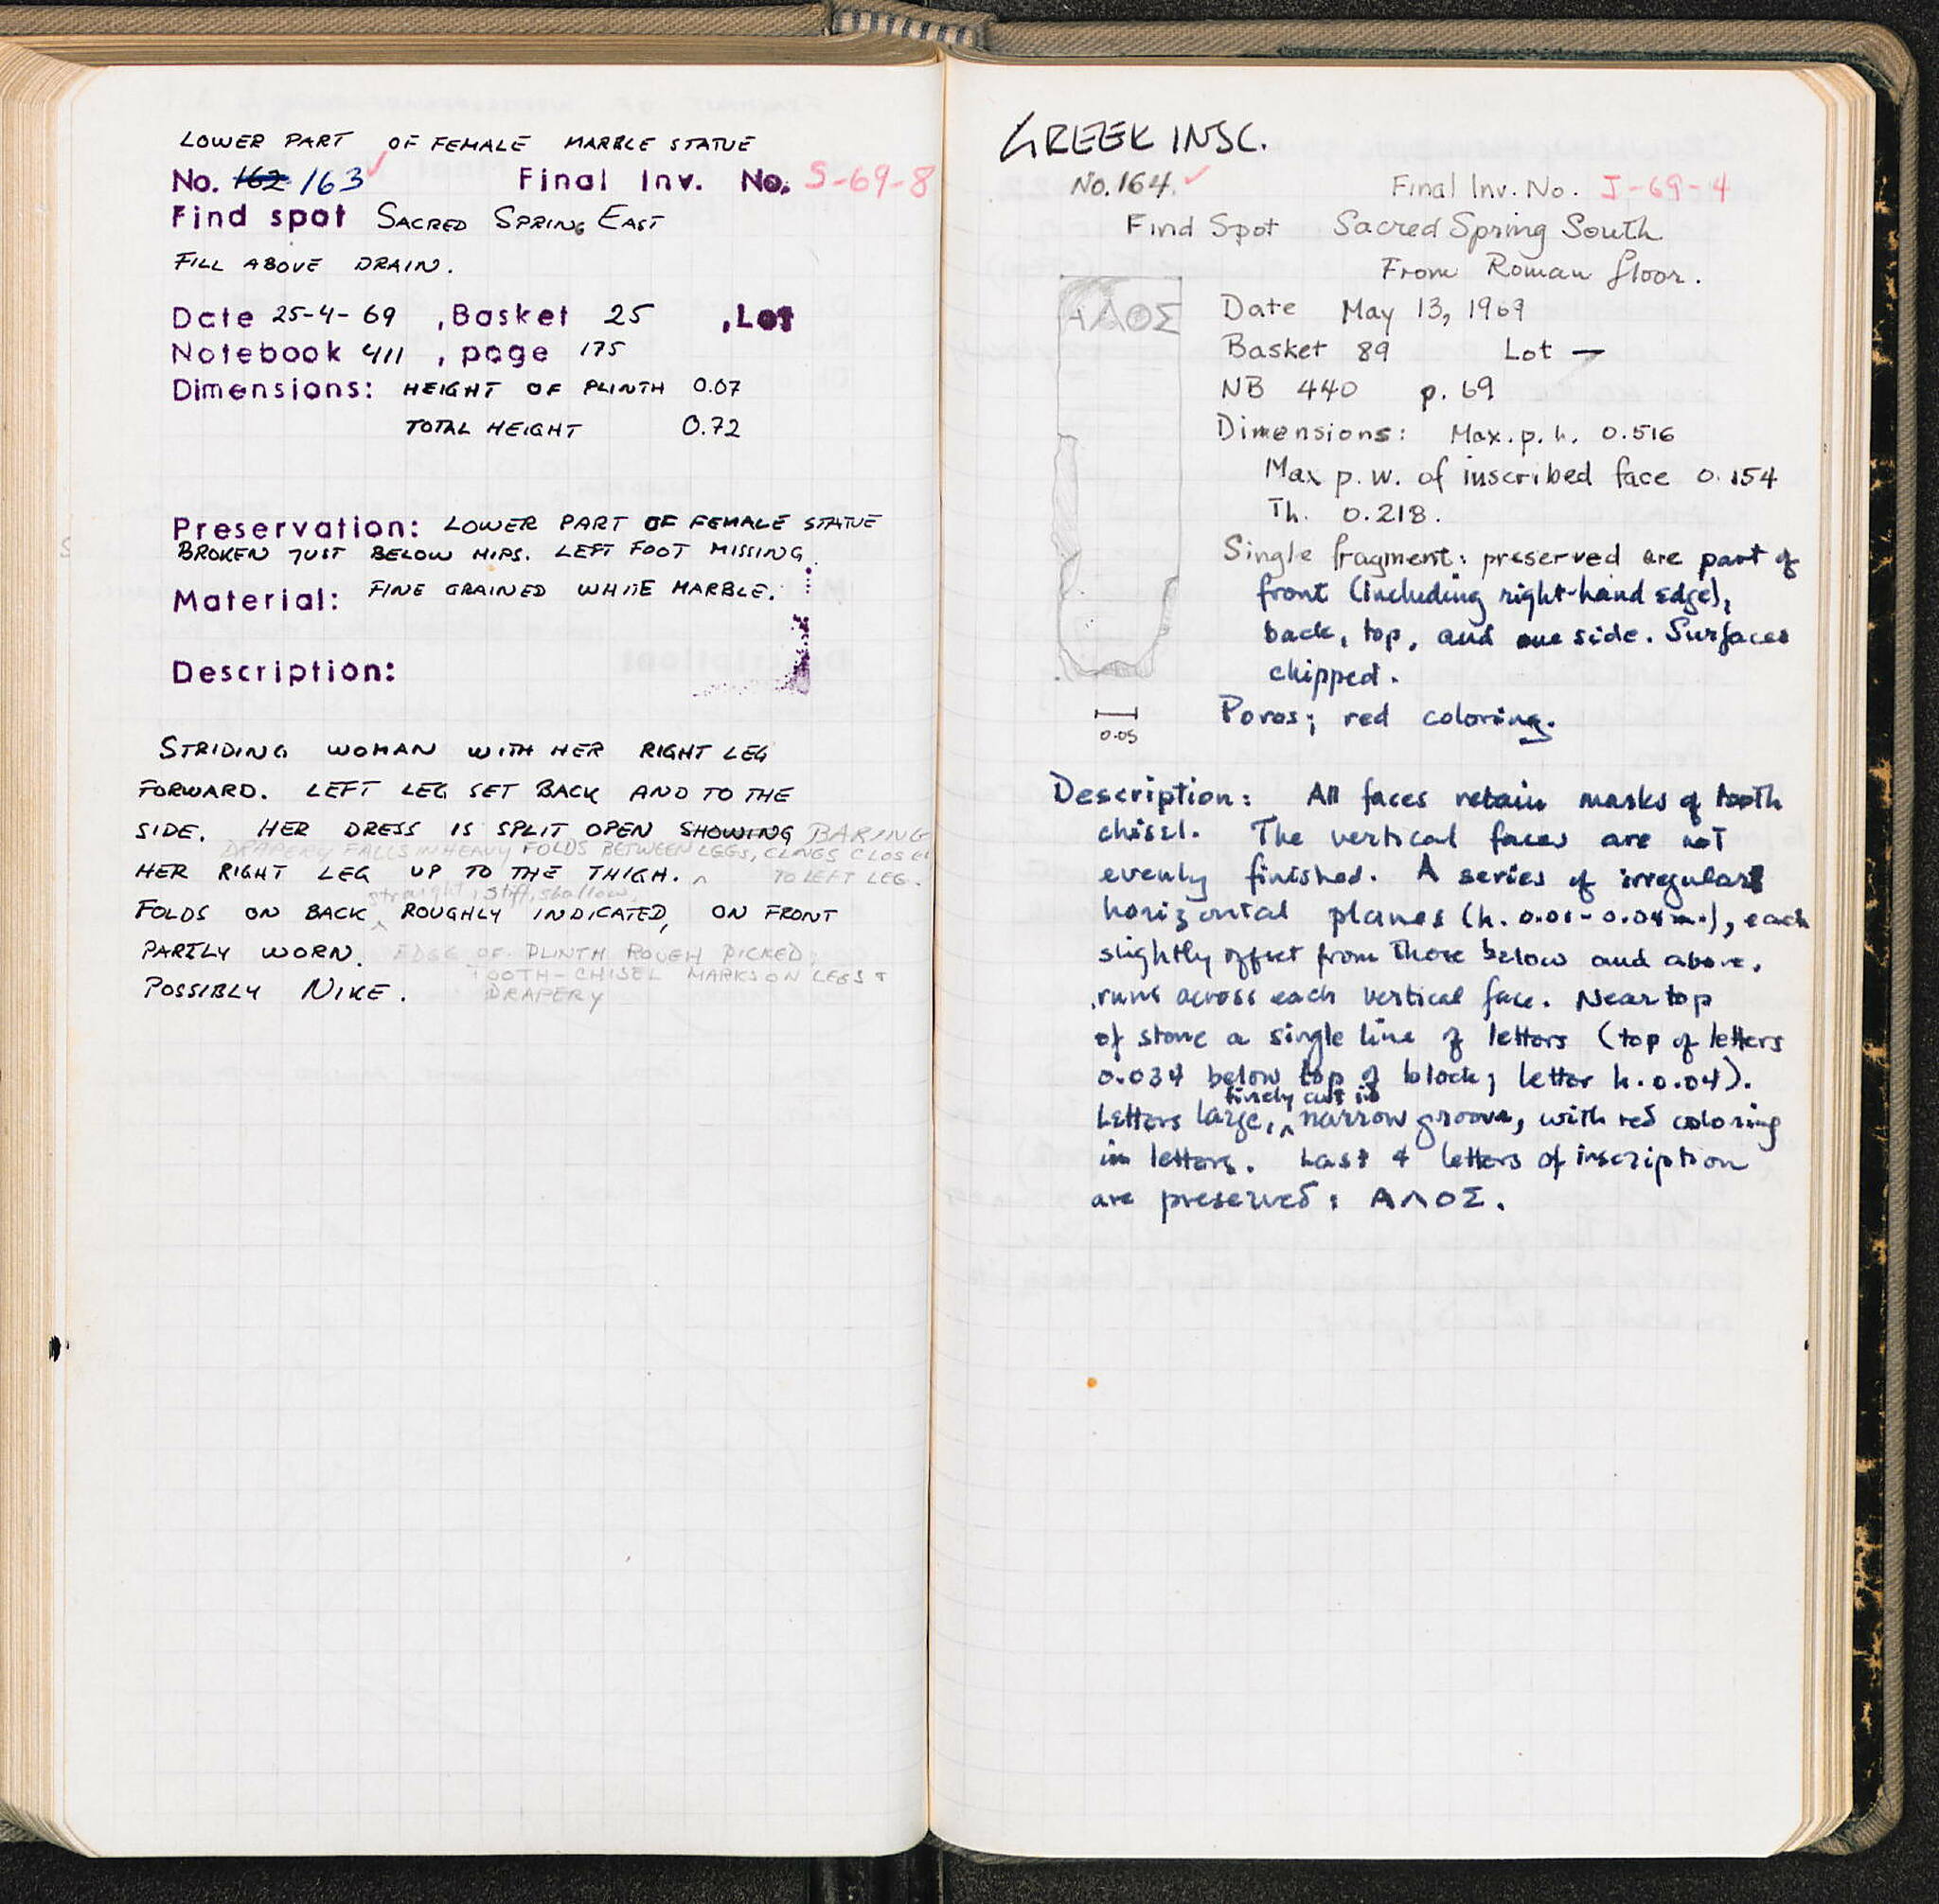 LOWER PART OF FEMALE MARBLE STATUE
No. 162 163 ✓ Final Inv. No. S-69-8
Find spot SACRED SPRING EAST
FILL ABOVE DRAIN.
Date 25-4-69 , Basket 25 , Lot
Notebook 411 , page 175
Dimensions: HEIGHT OF PLINTH 0.07
TOTAL HEIGHT 0.72
Preservation: LOWER PART OF FEMALE STATUE
BROKEN JUST BELOW HIPS. LEFT FOOT MISSING.
Material: FINE GRAINED WHITE MARBLE.
Description:
STRIDING WOMAN WITH HER RIGHT LEG
FORWARD. LEFT LEG SET BACK AND TO THE
SIDE. HER DRESS IS SPLIT OPEN SHOWING BARING
DRAPERY FALLS IN HEAVY FOLDS BETWEEN LEGS, CLINGS CLOSE
HER RIGHT LEG UP TO THE THIGH. ^ TO LEFT LEG.
straight, stiff, shallow
FOLDS ON BACK ^ ROUGHLY INDICATED, ON FRONT
PARTLY WORN. EDGE OF PLINTH ROUGH PICKED;
TOOTH-CHISEL MARKS ON LEGS +
POSSIBLY NIKE. DRAPERY
GREEK INSC.
No. 164. ✓ Final Inv. No. I-69-4
Find Spot Sacred Spring South
From Roman floor.
ΑΛΟΣ
Date May 13, 1969
Basket 89 Lot —
NB 440 p. 69
Dimensions: Max. p. h. 0.516
Max p. w. of inscribed face 0.154
Th. 0.218.
Single fragment: preserved are part of
front (including right-hand edge),
back, top, and one side. Surfaces
chipped.
Poros; red coloring.
0.05
Description: All faces retain marks of tooth
chisel. The vertical faces are not
evenly finished. A series of irregular
horizontal planes (h. 0.01-0.04m.), each
slightly offset from those below and above,
runs across each vertical face. Near top
of stone a single line of letters (top of letters
0.034 below top of block; letter h. 0.04).
finely cut in
Letters large, ^ narrow groove, with red coloring
in letters. Last 4 letters of inscription
are preserved: ΑΛΟΣ.